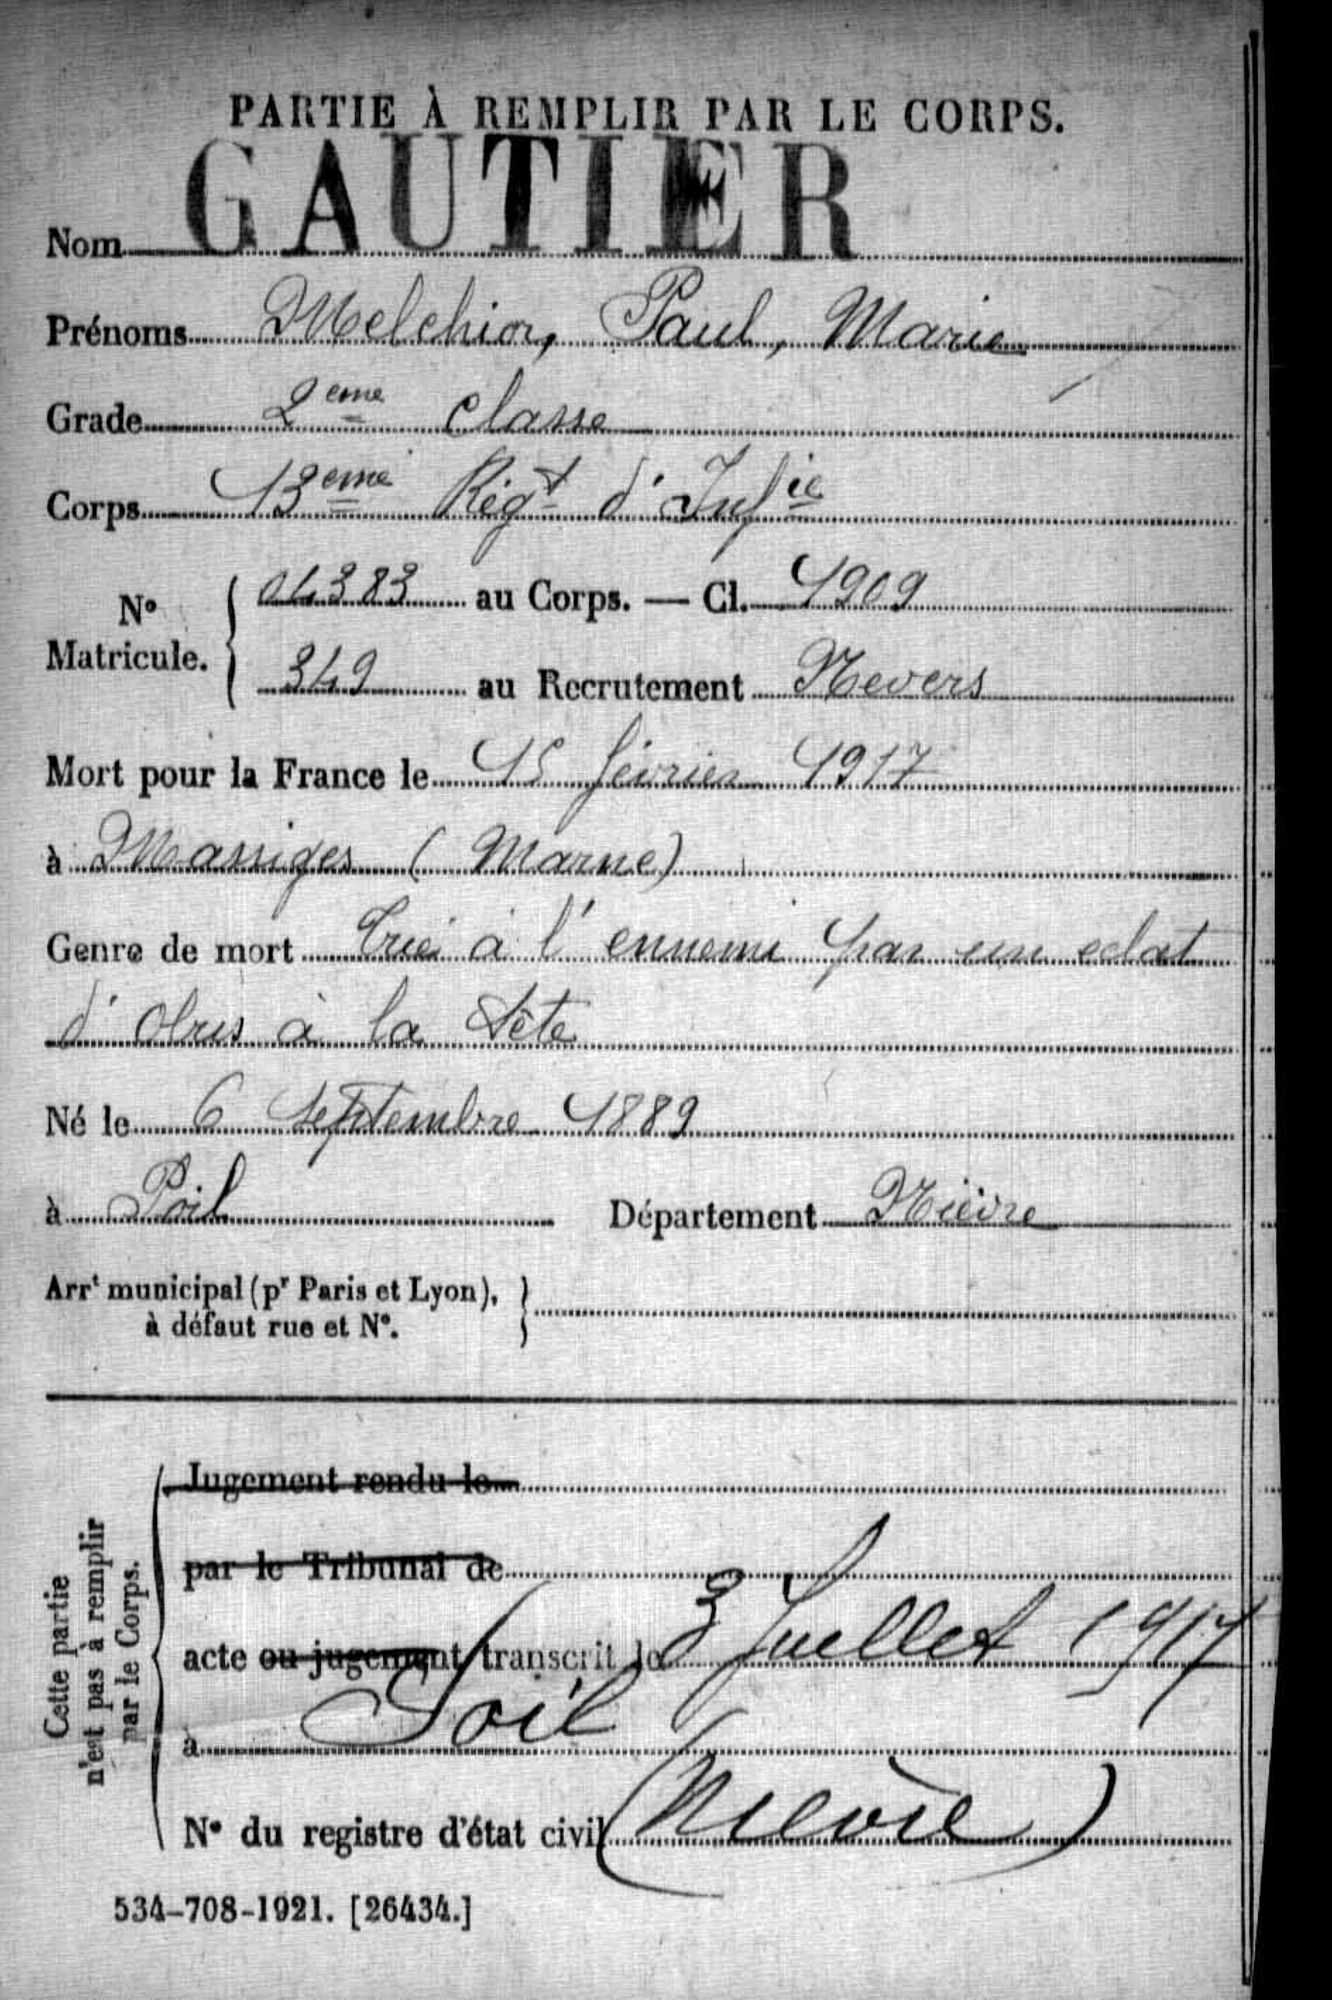 PARTIE À REMPLIR PAR LE CORPS.
Nom GAUTIER
Prénoms Melchior, Paul, Marie
Grade 2eme classe
Corps 13eme Régt d'Infie
No Matricule. { 04383 au Corps. — Cl. 1909
349 au Recrutement Nevers
Mort pour la France le 15 février 1917
à Massiges (Marne)
Genre de mort Tué à l'ennemi par un eclat
d'obus à la tête
Né le 6 Septembre 1889
à Poil Département Nièvre
Arrt municipal (pr Paris et Lyon), }
à défaut rue et No.
Cette partie
n'est pas à remplir
par le Corps.
Jugement rendu le
par le Tribunal de
acte ou jugement transcrit le 3 Juillet 1917
à Poil
No du registre d'état civil (Nièvre)
534-708-1921. [26434.]